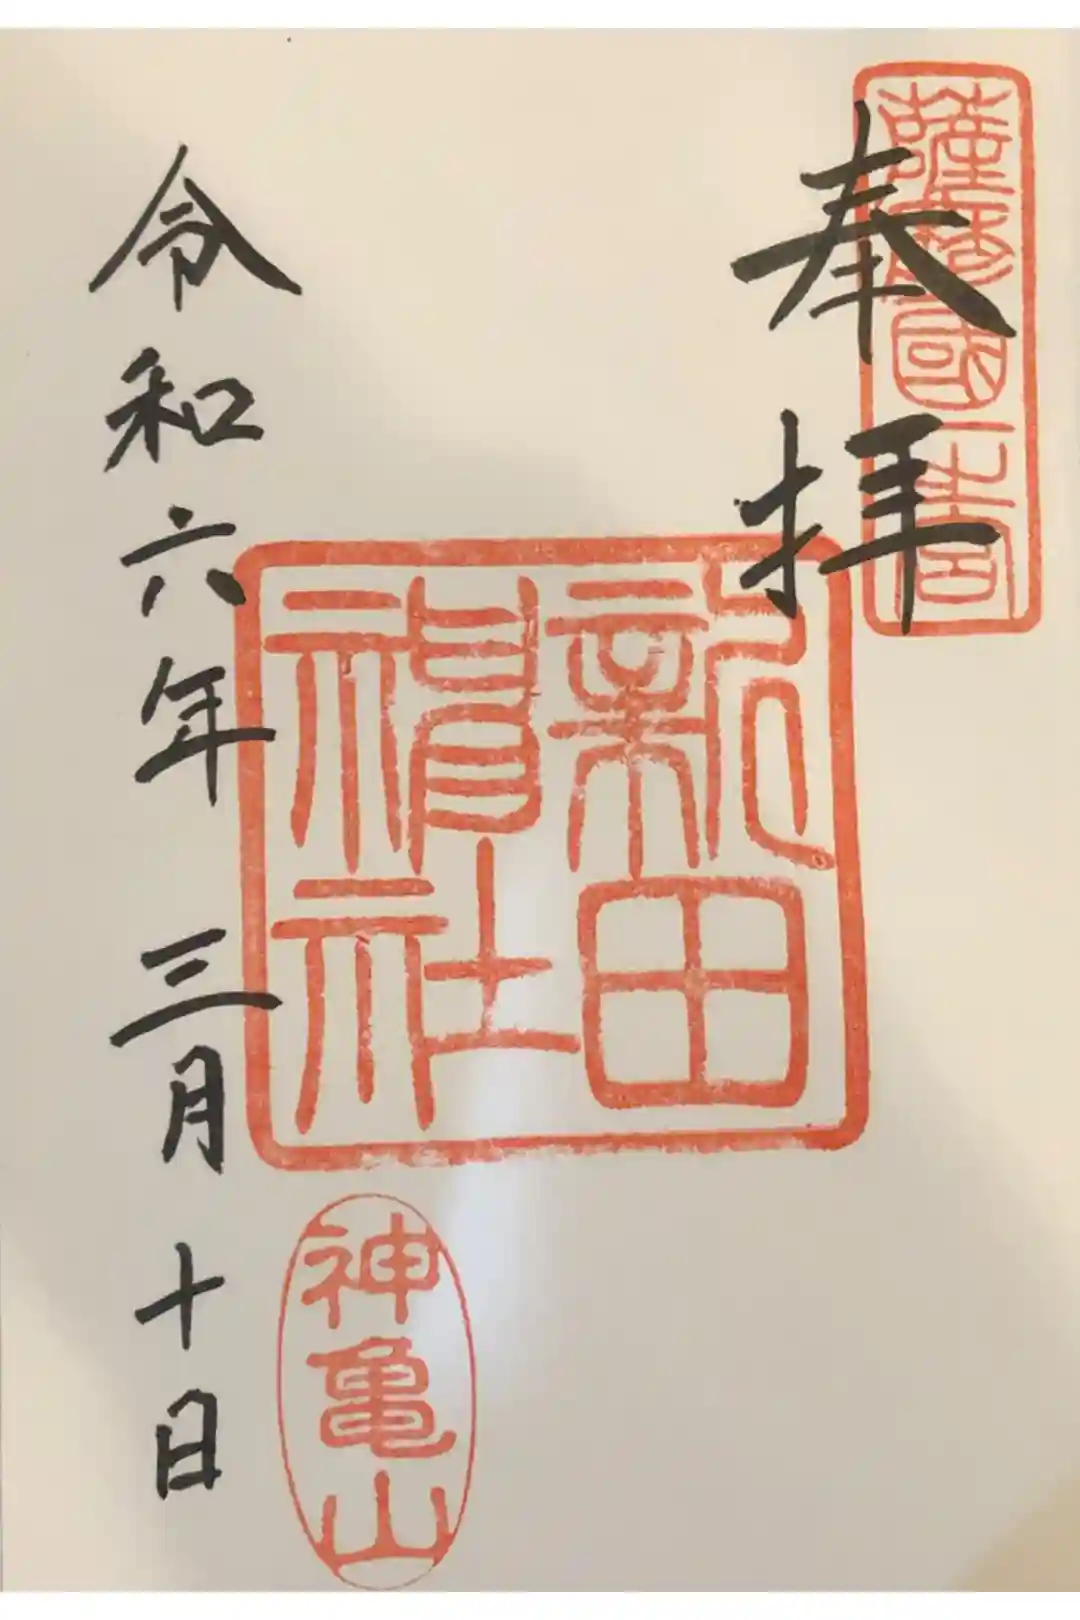 薩摩國一之宮
奉拝
新田
神社
神亀山
令和六年 三月 十日